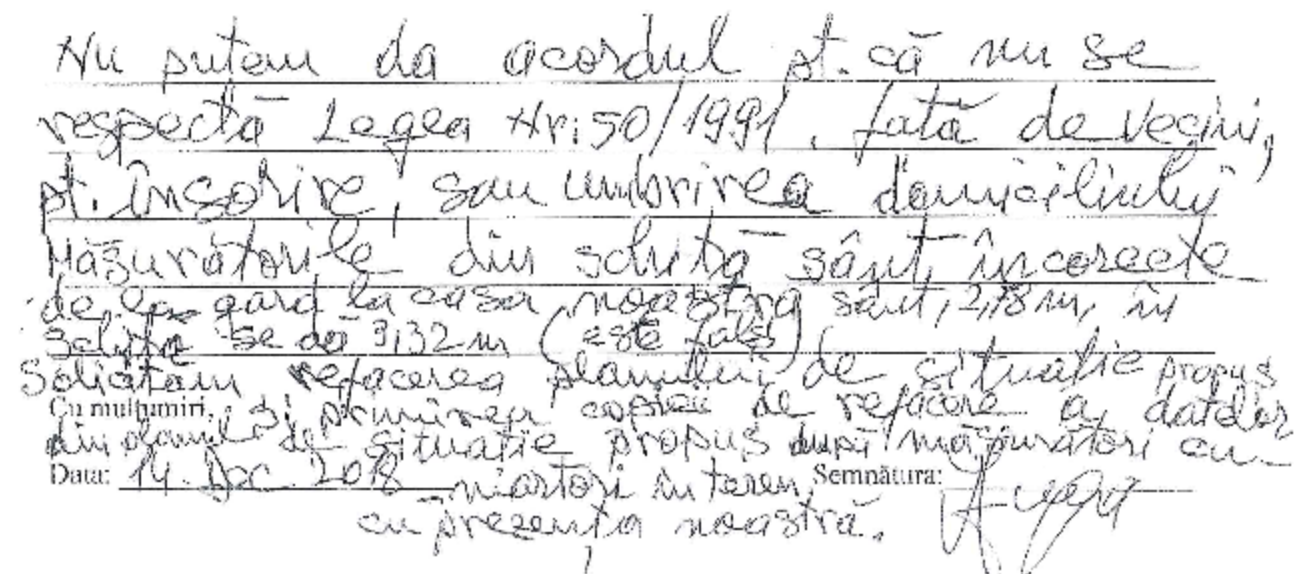 Nu putem da acordul pt. că nu se
respectă Legea Nr: 50/1991, față de vecini,
pt. însorire, sau umbrirea domiciliului
Măsurătorile din schiță sânt, incorecte
de la gard la casa noastră sânt, 2,18 m, în
schiță se dă 3,32 m (este fals)
Solicităm refacerea planului de situatie propus
Cu mulțumiri,
și primirea copiei de refacere a datelor
din planul de situație propus după măsurători cu
Data: 14. Dec 2018 martori în teren, Semnătura:
cu prezența noastră.